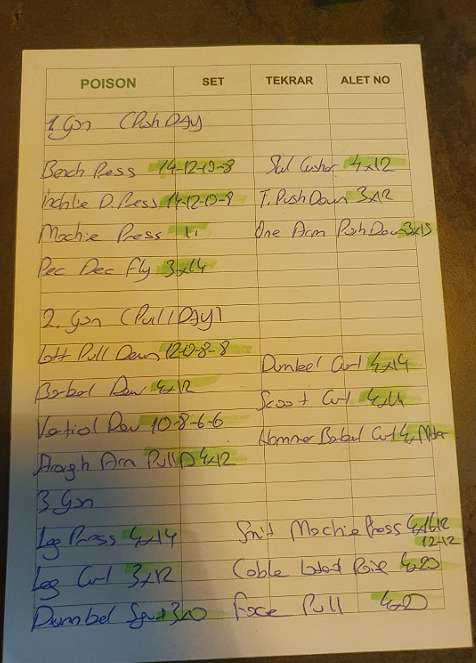 POISON SET TEKRAR ALET NO
1. Gün (Push DAY)
Bench Press 14-12-10-8
D. Press 14-12-10-8
Machie Press 11
Pec Dec Fly 3x14
4x12
T. Push Down 3x12
One Arm Push Down 3x15
2. Gün (Pull DAY)
Latt Pull Down 12-10-8-8
Barbel Row 4x12
Row 10-8-6-6
Arm Pull D 4x12
Dumbel Curl 4x14
Scoot Curl 4x14
Hammer Barbel Curl
3. Gün
Leg Press 4x14
Leg Curl 3x12
Dumbel 3x10
Smit Machie Press
12-12
Cable 4x20
Face Pull 4x20